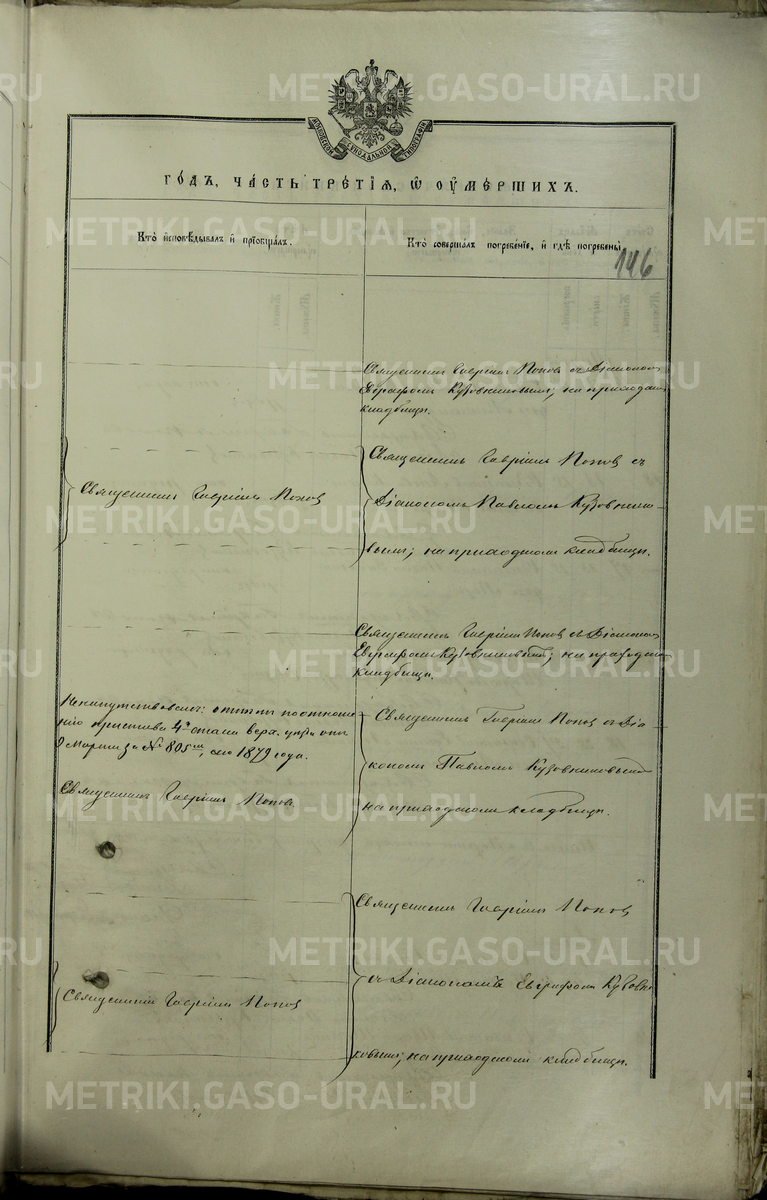 МОСКОВСКОЙ СУНОДАЛЬНОЙ ТИПОГРАФІИ
ГО́ДЪ, ЧА́СТЬ ТРЕ́ТІѦ, Ѡ ОУМЕ́РШИХЪ.
Кто̀ и҆сповѣ́дывалъ и҆ пріѻбща́лъ.
Кто̀ соверша́лъ погребе́нїе, и҆ гдѣ̀ погребены̀
146
Священникъ Гавріилъ Поповъ съ Діакономъ
Евграфомъ Кузовниковымъ; на приходскомъ
кладбищѣ.
Священникъ Гавріилъ Поповъ
Священникъ Гавріилъ Поповъ съ
Діакономъ Павломъ Кузовнико-
вымъ; на приходскомъ кладбищѣ.
Священникъ Гавріилъ Поповъ съ Діакономъ
Евграфомъ Кузовниковымъ; на приходскомъ
кладбищѣ.
по отноше-
нію пристава 4го стана Верх. уѣзда отъ
9 Марта за № 805мъ, сего 1879 года.
Священникъ Гавріилъ Поповъ
Священникъ Гавріилъ Поповъ съ Діа-
кономъ Павломъ Кузовниковымъ
на приходскомъ кладбищѣ.
Священникъ Гавріилъ Поповъ
Священникъ Гавріилъ Поповъ
съ Діакономъ Евграфомъ Кузовни-
ковымъ; на приходскомъ кладбищѣ.
METRIKI.GASO-URAL.RU